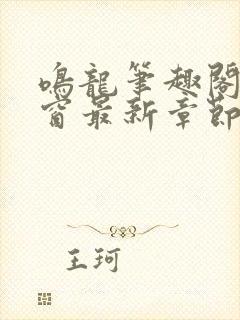 鳴龍筆趣閣
窗最新章節
王珂